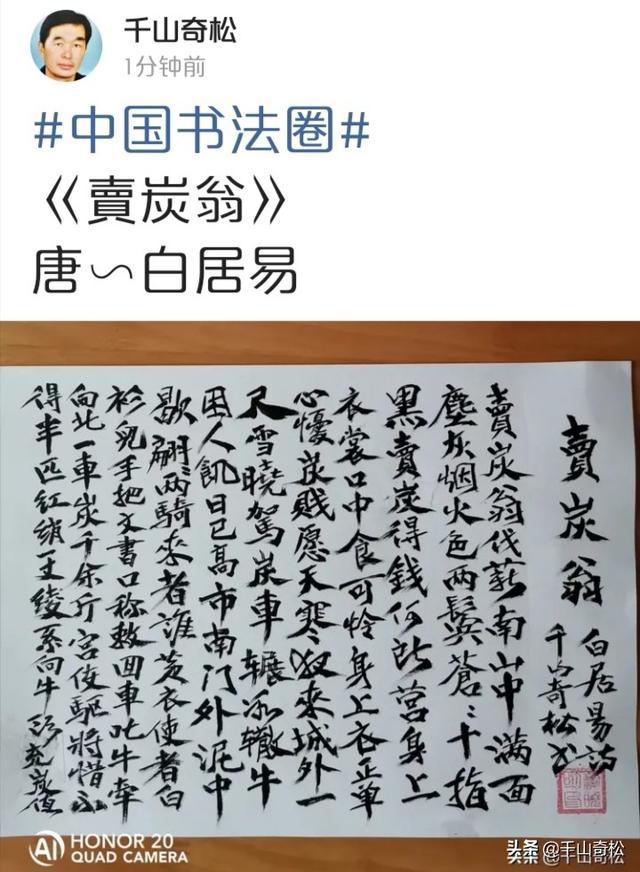 千山奇松
1分钟前
#中国书法圈#
《賣炭翁》
唐∽白居易
賣炭翁
白居易诗
千山奇松书
賣炭翁伐薪南山中满面
塵灰烟火色两鬓蒼〻十指
黑賣炭得錢何所营身上
衣裳口中食可怜身上衣正单
心懮炭贱愿天寒夜来城外一
尺雪曉駕炭車辗冰辙牛
困人飢日已高市南门外泥中
歇翩〻两騎来者誰黄衣使者白
衫兒手把文書口称敕回車叱牛牵
向北一車炭千余斤宫使驱將惜不
得半匹红绡一丈绫系向牛头充炭值
HONOR 20
AI QUAD CAMERA
头条 @千山奇松